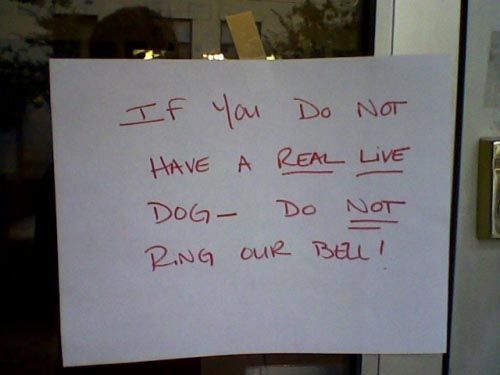 IF YOU DO NOT
HAVE A REAL LIVE
DOG— DO NOT
RING OUR BELL!